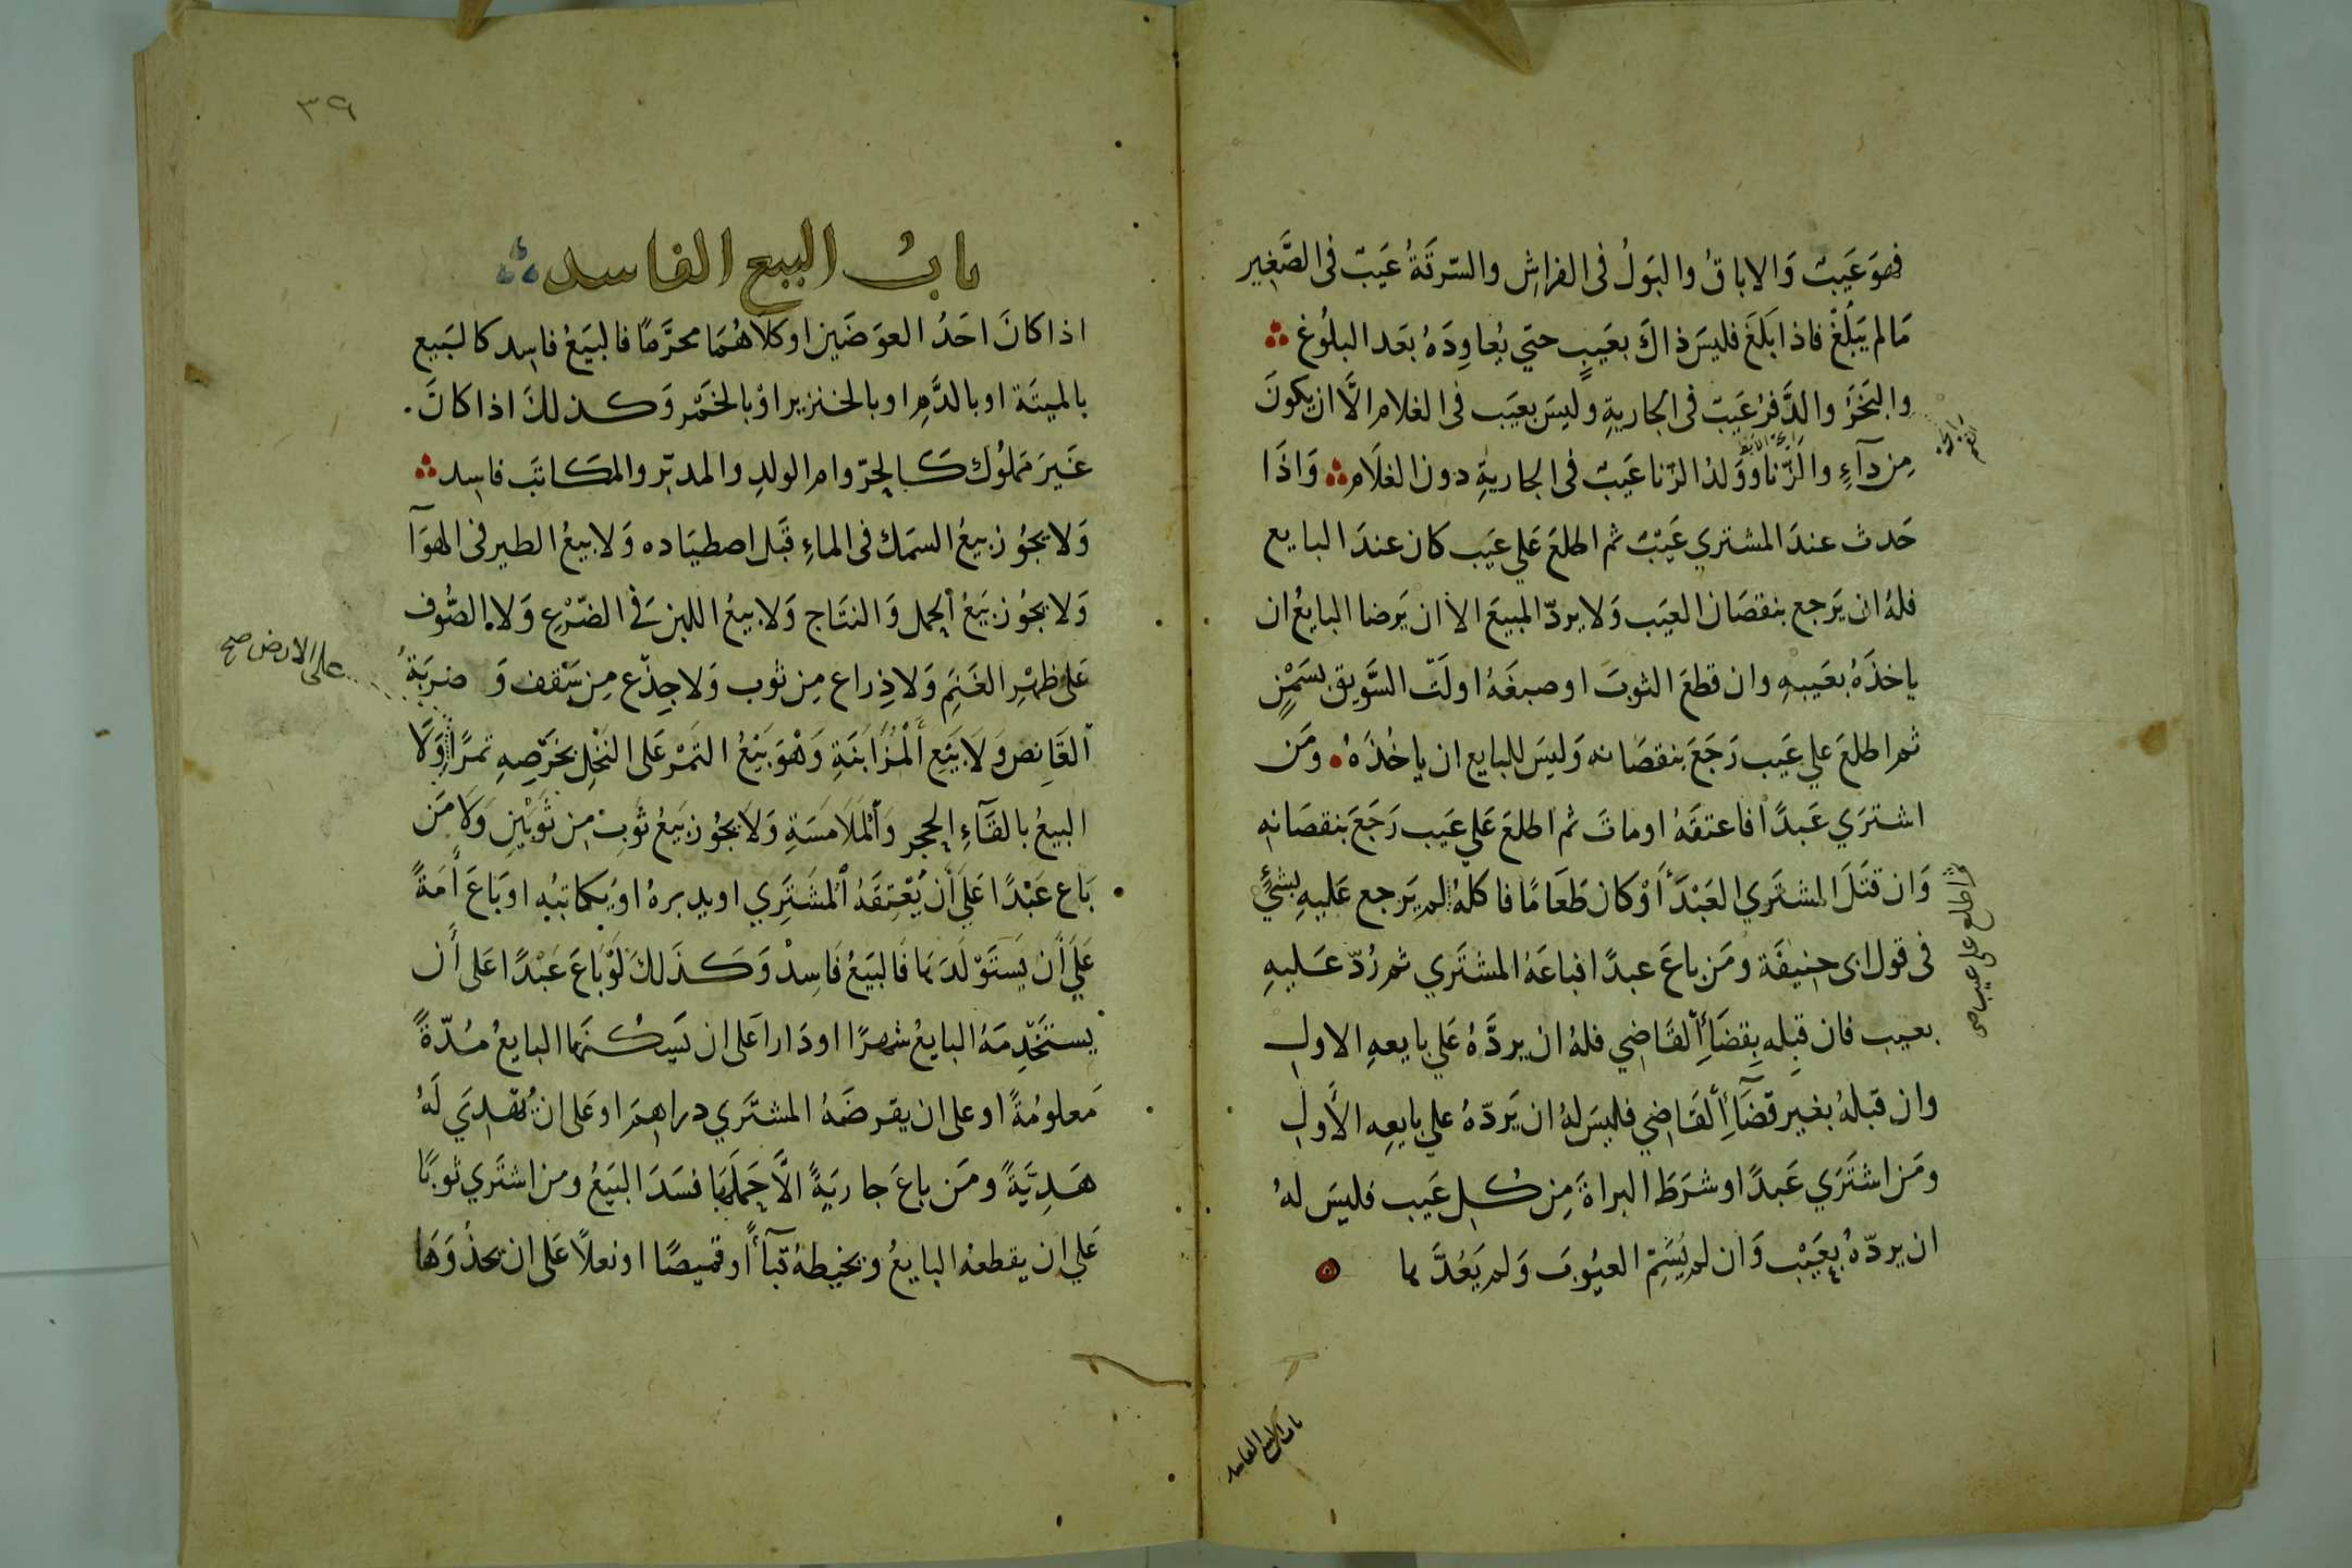 فهوَ عَيبٌ وَالاباقُ والبَولُ فى الفراشِ والسّرقَةُ عَيبٌ فى الصَّغِير
مَا لم يَبْلُغْ فاذا بَلَغَ فليسَ ذاكَ بعَيبٍ حتي يُعاوِدَهُ بعَد البلُوغ
والبَخَرُ والدَّفرُ عَيبٌ فى الجاريةِ وليسَ بعيَب فى الغلام الَّا ان يكونَ
مِن دآءٍ والزّنا وَوَلدُ الزّنا عَيبٌ فى الجاريةِ دون الغلَام وَاذَا
حَدث عندَ المشتري عَيْبٌ ثم اطلعَ عَلي عيَب كان عندَ البايع
فلهُ ان يَرجع بنقصَان العيَب وَلا يردّ المبيعَ الا ان يَرضا البايعُ ان
ياخذَهُ بعَيبهِ وان قطعَ الثوبَ او صبغَهُ اولَتّ السَّويق بسَمْنٍ
ثم اطلعَ علي عَيب رَجَعَ بنقصَانه وَليسَ للبايع ان ياخُذَهُ ومَن
اشترَي عَبدًا فاعتقَهُ اوماتَ ثم اطلعَ عَلي عيَب رَجَعَ بنقصَانهِ
وَان قتَلَ المشتَري العَبْدَ أَوْ كان طَعَامًا فاكلَهُ لم يَرجع عَليهِ بشئٍ
فى قول ابى حنيفَة ومَن باعَ عبدًا فباعَهُ المشتَري ثم رُدّ عَليهِ
بعيب فان قبِله بِقضَآءِ القَاضِي فلهُ ان يردَّهُ عَلي بايعهِ الاول
وان قبلهُ بغير قضَآءِ القَاضِي فليسَ لهُ ان يَردّهُ علي بايعِه الأَولِ
ومَن اشتَرَي عَبدًا وشرَطَ البراةَ مِن كُلِ عَيب فليسَ لهُ
ان يردّهُ بعَيْب وَان لم يُسَمِّ العيُوبَ وَلم يَعُدَّها
ثم اطلع على عيب صح
باب البيع الفاسد
٣٩
بابُ البيع الفاسد
اذا كانَ احَدُ العوَضَين اوكلاهُمَا محرَّمًا فالبيَعُ فاسِد كالبَيع
بالميتَة اوبالدَّمِ اوبالخنزير اوْ بالخَمْر وَكذلكَ اذا كانَ
غَيرَ مَملوُك كَالحرّ وام الولدِ والمدبّر والمكاتبَ فاسِد
وَلا يجوُز بيعُ السمَك فى الماءِ قبَل اصطيَاده وَلا بيعُ الطير فى الهوَآ
وَلا يجُوز بَيعُ الحمل وَالنتَاج وَلا بيعُ اللبن فَي الضّرْعِ وَلا الصُّوف
عَلى ظهْرِ الغَنَمِ وَلا ذِراع مِن ثوب وَلا جِذّع مِن سَقف وَ ضربَةُ
على الارض صح
القَانِص وَلَا بَيَع أَلْمُزَابَنَةِ وَهْوَ بَيْعُ التمَرْ عَلى النَخْلِ بخَرْصِهِ تمرًا وَلَا
البيعُ بالقَآءِ الحجر وَالْمَلَامَسَةِ وَلَا يجُوز بَيَعُ ثَوبٍ مِن ثَوبَيْنِ وَلَا مَن
بَاع عَبْدًا عَلَي أَن يُعْتِقَهُ الْمشَترَِي اويدبرهُ اوُيكاتبُه اوبَاعَ أَمَةً
عَلَي أَن يَستَوْلَدَها فَالبيَعُ فَاسِدٌ وَكَذَلكَ لَوْ بَاعَ عَبْدًا عَلى أَن
يستَخْدِمَهُ البايعُ شهرًا اودَارا عَلى ان يَسكُنهَا البايعُ مُدّةً
مَعلومُةً اوعلى ان يقرضَهُ المشتَري دراهِمَ اوعَلى ان يُهْدِيَ لَهُ
هَدِيَّةً ومَن باعَ جاريَةً الَّا حَملَهَا فسَدَ البيَعُ ومن اشتَري ثوبًا
عَلي ان يقطعهُ البايعُ ويخيطهُ قبَآءً أوقميصًا اونعلاً عَلى ان يحذُوَهَا